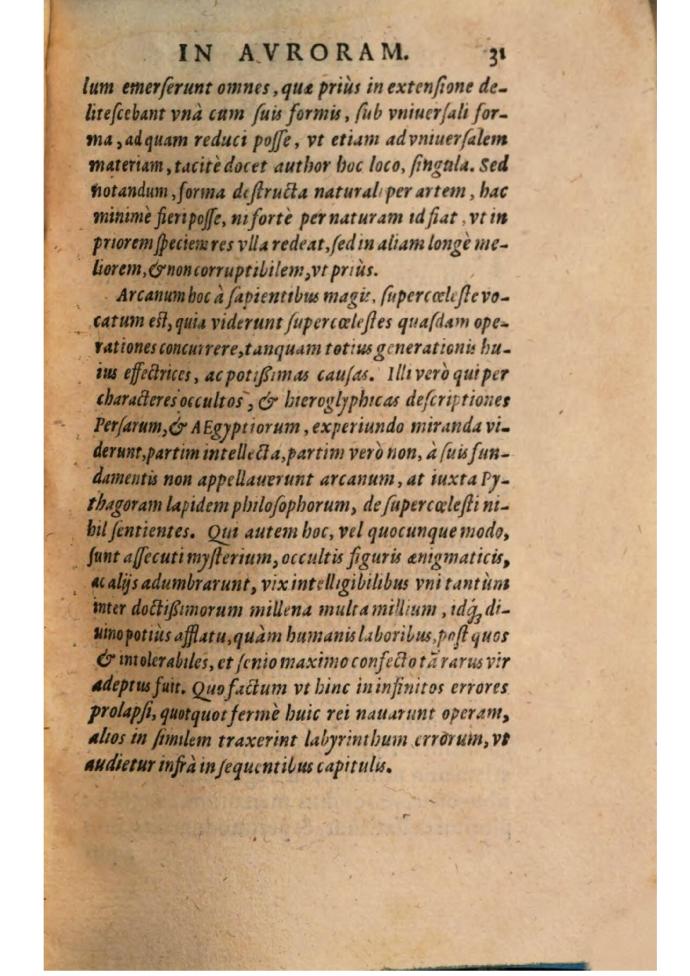 IN AVRORAM. 31
lum emerſerunt omnes, quæ priùs in extenſione de-
liteſcebant vnà cum ſuis formis, ſub vniuerſali for-
ma, ad quam reduci poſſe, vt etiam ad vniuerſalem
materiam, tacitè docet author hoc loco, ſingula. Sed
notandum, forma deſtructa naturali per artem, hac
minimè fieri poſſe, ni fortè per naturam id fiat, vt in
priorem ſpeciem res vlla redeat, ſed in aliam longè me-
liorem, & non corruptibilem, vt priùs.
Arcanum hoc à ſapientibus magis, ſupercœleſte vo-
catum eſt, quia viderunt ſupercœleſtes quaſdam ope-
rationes concurrere, tanquam totius generationis hu-
ius effectrices, ac potißimas cauſas. Illi verò qui per
characteres occultos, & hieroglyphicas deſcriptiones
Perſarum, & AEgyptiorum, experiundo miranda vi-
derunt, partim intellecta, partim verò non, à ſuis fun-
damentis non appellauerunt arcanum, at iuxta Py-
thagoram lapidem philoſophorum, de ſupercœleſti ni-
hil ſentientes. Qui autem hoc, vel quocunque modo,
ſunt aſſecuti myſterium, occultis figuris ænigmaticis,
ac alijs adumbrarunt, vix intelligibilibus vni tantùm
inter doctißimorum millena multa millium, idq́ꝫ di-
uino potiùs afflatu, quàm humanis laboribus, poſt quos
& intolerabiles, et ſenio maximo confecto tā rarus vir
adeptus fuit. Quo factum vt hinc in infinitos errores
prolapſi, quotquot fermè huic rei nauarunt operam,
alios in ſimilem traxerint labyrinthum errorum, vt
audietur infrà in ſequentibus capitulis.